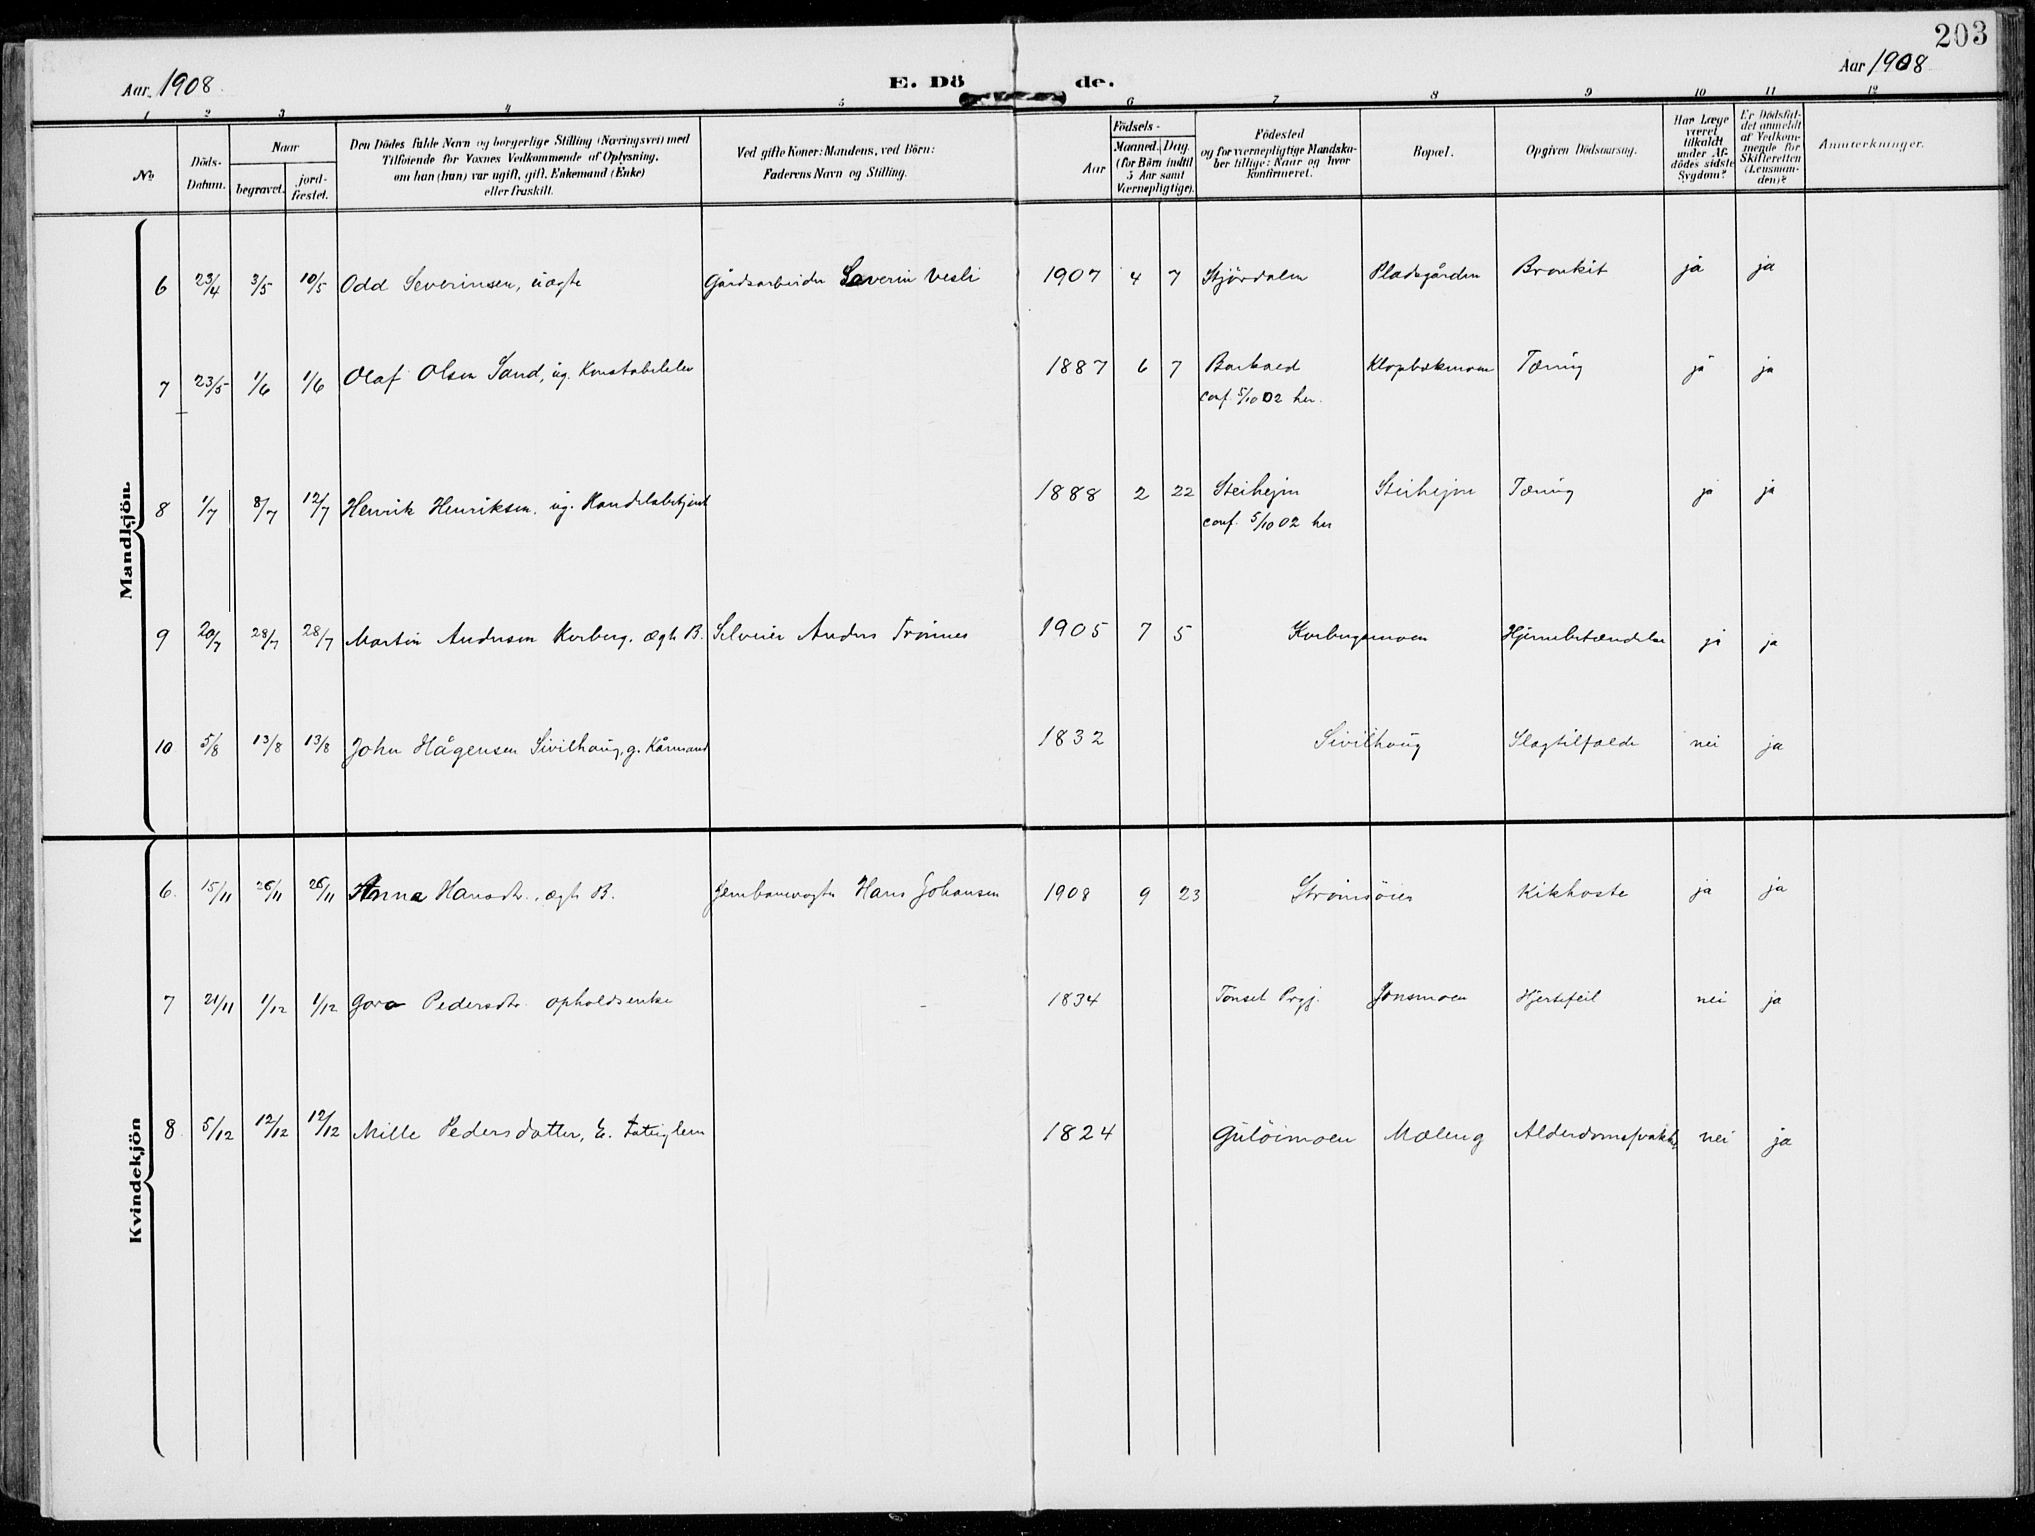 203
Aar 1908
E. Dö de.
Aar 1908
1 2 3 4 5 6 7 8 9 10 11 12
No
Döds-
Datum.
Naar
begravet.
jord-
fæstet.
Den Dödes fulde Navn og borgerlige Stilling (Næringsvei) med
Tilföiende for Voxnes Vedkommende af Oplysning,
om han (hun) var ugift, gift, Enkemand (Enke)
eller fraskilt.
Ved gifte Koner: Mandens, ved Börn:
Faderens Navn og Stilling.
Födsels-
Aar
Maaned. Dag.
(for Börn indtil
5 Aar samt
Værnepligtige).
Födested
og for værnepligtige Mandska-
ber tillige: Naar og hvor
Konfirmeret.
Bopæl.
Opgiven Dödsaarsag.
Har Læge
været
tilkaldt
under Af-
dödes sidste
Sygdom?
Er Dödsfal-
det anmeldt
af Vedkom-
mende for
Skifteretten
(Lensman-
den)?
Anmærkninger.
Mandkjön.
6 23/4 3/5 10/5 Odd Severinsen, uægte Gårdsarbeider Severin Vesli 1907 4 7 Stjørdalen Pladsgården Bronkit ja ja
7 23/5 1/6 1/6 Olaf Olsen Sand, ug. Konstabelelev 1887 6 7 Barkald Tæring ja ja
conf. 5/10 02 her.
8 1/7 8/7 12/7 Henrik Henriksen, ug. Handelsbetjent 1888 2 22 Steihejm Steihejm Tæring ja ja
conf. 5/10 02 her
9 20/7 28/7 28/7 Martin Andersen Korberg. ægte B. Selveier Anders Trønnes 1905 7 5 Korbergsmoen Hjernebetændelse ja ja
10 5/8 13/8 13/8 John Hågensen Sivilhaug, g. Kårmand 1832 Sivilhaug Slagtilfælde nei ja
Kvindekjön
6. 15/11 26/11 26/11 Anna Hansdtr., ægte B. Jernbanevogter Hans Johansen 1908 9 23 Strømsøien Kikhoste ja ja
7 21/11 1/12 1/12 Goro Pedersdtr. opholdsenke - 1834 Tønset Prgj. Jonsmoen Hjertefeil nei ja
8 5/12 12/12 12/12 Mille Pedersdatter, E. fattiglem 1824 Guløimoen Mæleng Alderdomssvakhet nei ja